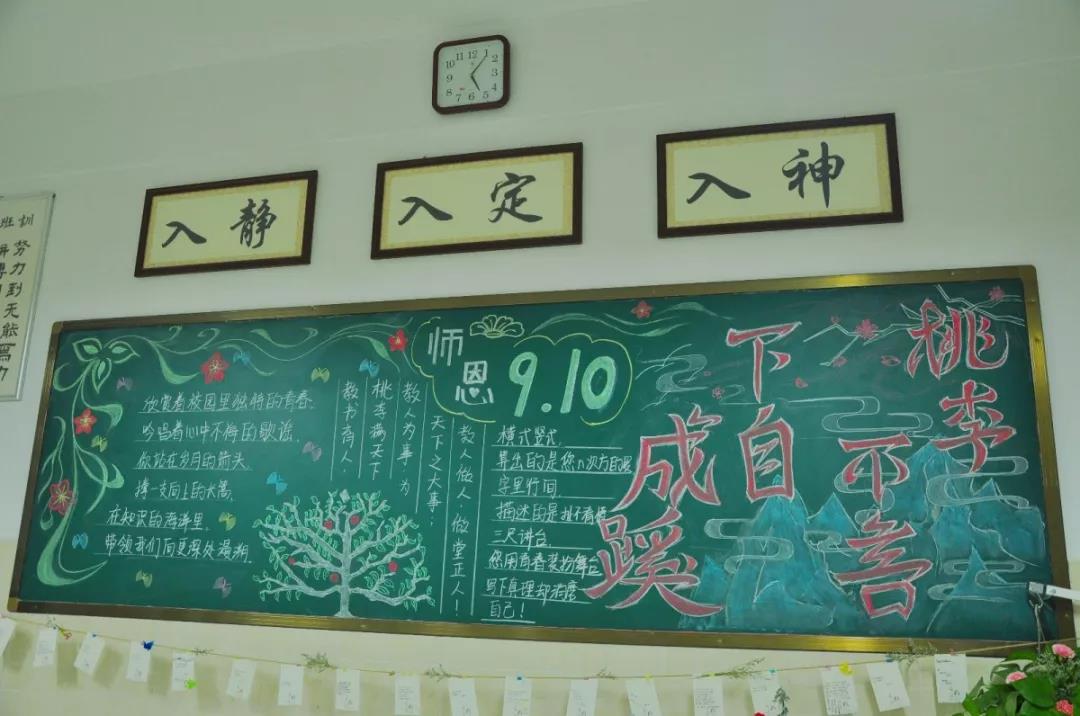 11 12 1
10 2
9 3
8 4
7 6 5
入静
入定
入神
班训
努力到无能為力
欣赏着校园里独特的青春,
吟唱着心中不停的歌谣,
你站在岁月的箭头,
撑一支向上的长篙,
在知识的海洋里,
带领我们向更深处漫溯.
教书育人,
桃李满天下
教人为事,为
天下之大事;
教人做人,做堂正人!
师恩
9.10
横式竖式,
算出的是您n次方的
字里行间,
描述的是
三尺讲台,
您用青春装扮舞台
写下真理却消磨
自己!
桃李
不言
下自
成蹊